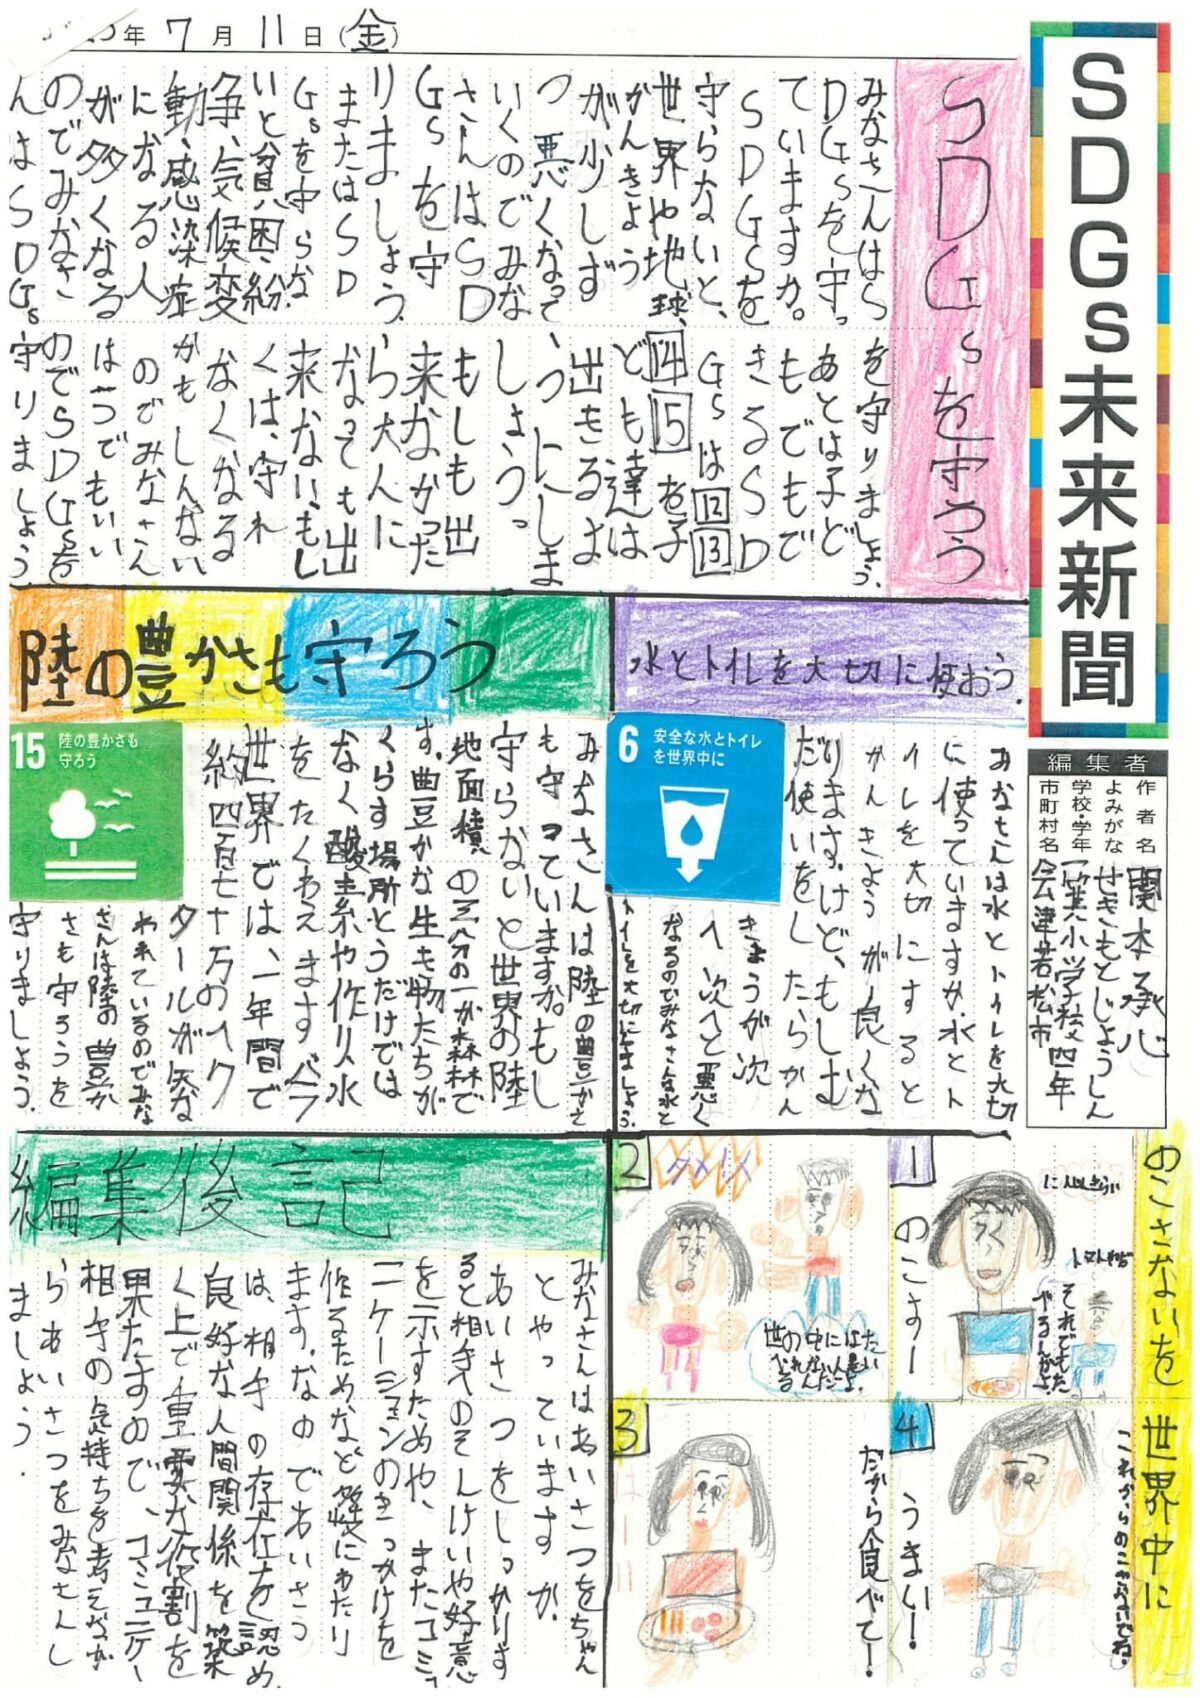 年7月11日(金)
SDGs未来新聞
編集者
作者名 関本承心
よみがな せきもとじょうしん
学校・学年 一箕小学校四年
市町村名 会津若松市
SDGsを守ろう
みなさんはS
DGsを守っ
ていますか。
SDGsを
守らないと、
世界や地球、
かんきょう
が少しず
つ悪くなって
いくのでみな
さんはSD
Gsを守
りましょう。
またはSD
Gsを守らな
いと貧困、紛
争、気候変
動、感染症
になる人
が多くなる
のでみなさ
んはSDGs
を守りましょう。
あとは子ど
もでもで
きるSD
Gsは12 13
14 15を子
ども達は
出きるよ
うにしま
しょう。
もしも出
来なかった
ら大人に
なっても出
来ない、もし
くは、守れ
なくなる
かもしんない
のでみなさん
は一つでもいい
のでSDGsを
守りましょう。
水とトイレを大切に使おう。
6 安全な水とトイレ
を世界中に
みなさんは水とトイレを大切
に使っていますか。水とト
イレを大切にすると
かんきょうが良くな
ります。けど、もしむ
だ使いをしたらかん
きょうが次
へ次へと悪く
なるのでみなさんも水と
トイレを大切にしましょう。
陸の豊かさも守ろう
15 陸の豊かさも
守ろう
みなさんは陸の豊かさ
も守っていますか。もし
守らないと世界の陸
地面積の三分の一が森林で
す。豊かな生き物たちが
くらす場所とうだけでは
なく酸素や作り、水
をたくわえますバラ
世界では、一年間で
約四百七十万のヘク
タールが失な
われているのでみな
さんは陸の豊か
さも守ろうを
守りましょう。
のこさないを世界中に
1
にんじんきらい
トマトわだ
それでもた
べるんだよ
のこすー
2
ダメ!ダメ
世の中にはたい
べれない人も
いるんだよ。
3
だから食べてー!
4
うまい!
これからのこさないでね。
編集後記
みなさんはあいさつをちゃん
とやっていますか。
あいさつをしっかりす
ると相手のそんけいや好意
を示すためや、またコミュ
ニケーションのきっかけを
作るため、など多岐にわたり
ます。なのであいさつ
は、相手の存在を認め、
良好な人間関係を築
く上で重要な役割を
果たすので、コミュニケー
相手の気持ちを考えなが
らあいさつをみなさんし
ましょう。